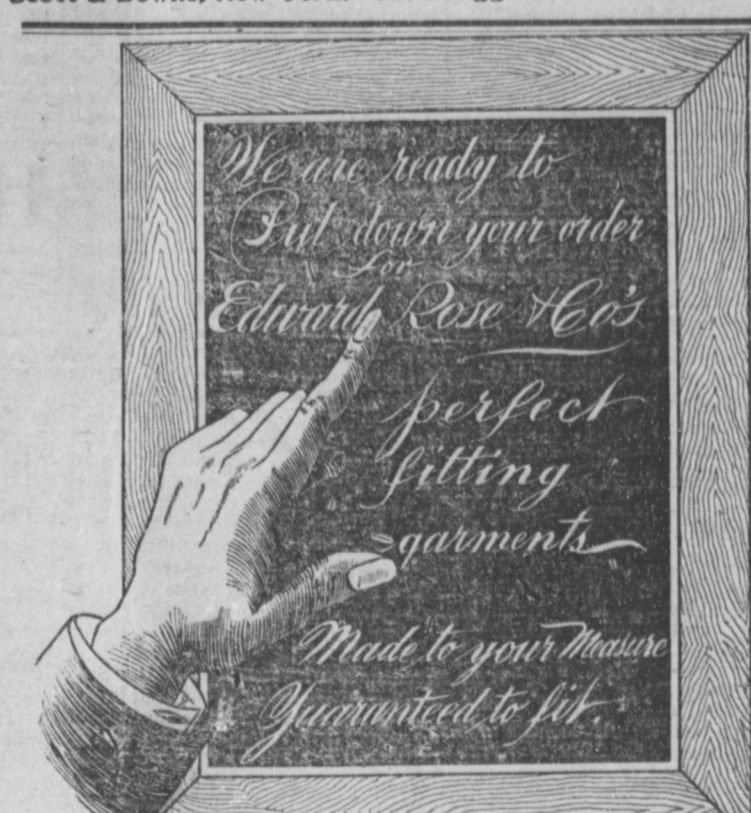 Scott & Bowne, New York
We are ready to
Put down your order
for
Edward Rose & Co's
perfect
fitting
garments
Made to your Measure
Guaranteed to fit.